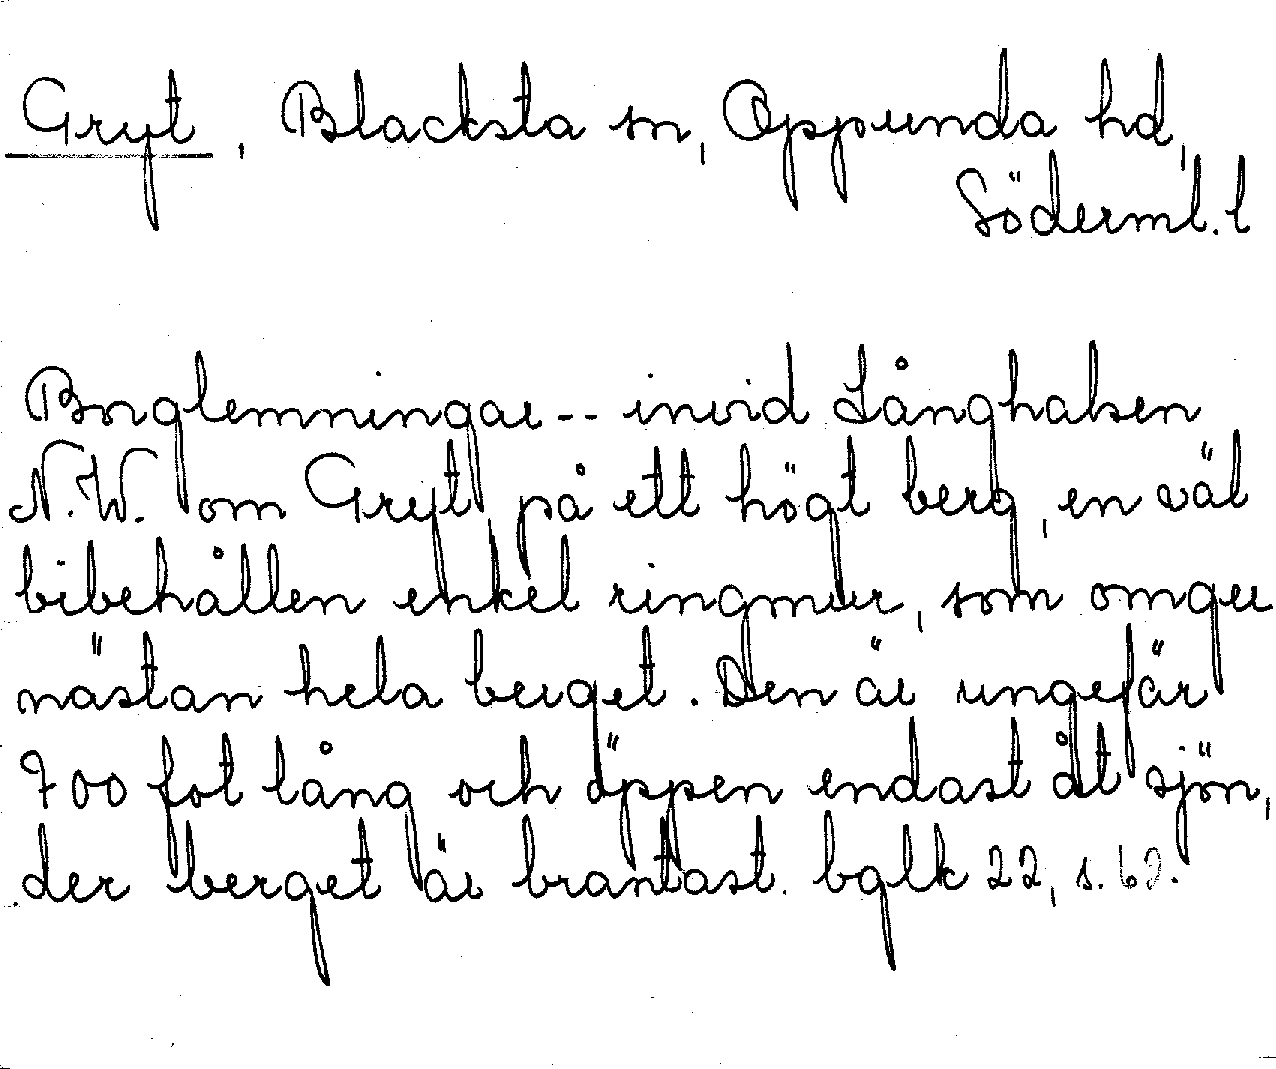 Gryt, Blacksta sn, Oppunda hd,
Söderml. l
Borglemningar -- invid Långhalsen
N.W. om Gryt på ett högt berg, en väl
bibehållen enkel ringmur, som omger
nästan hela berget. Den är ungefär
700 fot lång och öppen endast åt sjön,
der berget är brantast. bglk 22, s. 62.